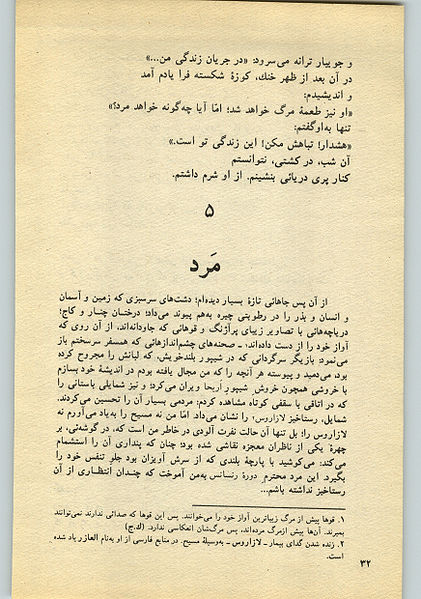 و جویبار ترانه می‌سرود: «در جریان زندگی من...»
در آن بعد از ظهر خنك، کوزهٔ شکسته فرا یادم آمد
و اندیشیدم:
«او نیز طعمهٔ مرگ خواهد شد؛ امّا آیا چه‌گونه خواهد مرد؟»
تنها به‌او‌گفتم:
«هشدار! تباهش مکن! این زندگی تو است.»
آن شب، در کشتی، نتوانستم
کنار پری دریائی بنشینم. از او شرم داشتم.
۵
مَرد
از آن پس جاهائی تازهٔ بسیار دیده‌ام؛ دشت‌های سرسبزی که زمین و آسمان
و انسان و بذر را در رطوبتی چیره به‌هم پیوند می‌داد؛ درختان چنار و کاج؛
دریاچه‌هائی با تصاویر زیبای پرآژنگ و قوهائی که جاودانه‌اند، از آن روی که
آواز خود را از دست داده‌اند۱ - صحنه‌های چشم‌اندازهائی که همسفر سرسختم باز
می‌نمود: بازیگر سرگردانی که در شیپور بلندخویش، که لبانش را مجروح کرده
بود، می‌دمید و پیوسته هر آنچه را که من مجال یافته بودم در اندیشهٔ خود بسازم
با خروشی همچون خروش شیپورِ اَریحا ویران می‌کرد؛ و نیز شمایلی باستانی را
که در اتاقی با سقفی کوتاه مشاهده کردم: مردمی بسیار آن را تحسین می‌کردند.
شمایل، رستاخیز لازاروس۲ را نشان می‌داد. امّا من نه مسیح را به‌یاد می‌آورم نه
لازاروس را؛ بل تنها آن حالت نفرت آلودی در خاطر من است که، در گوشه‌ئی، بر
چهرهٔ یکی از ناظران معجزه نقاشی شده بود؛ چنان که پنداری آن را استشمام
می‌کند: می‌کوشید با پارچهٔ بلندی که از سرش آویزان بود جلو تنفس خود را
بگیرد. این مرد محترم دورهٔ رنسانس به‌من آموخت که چندان انتظاری از آن
رستاخیز نداشته باشم...
۱. قوها پیش از مرگ زیباترین آواز خود را می‌خوانند. پس این قوها که صدائی ندارند نمی‌توانند
بمیرند. آن‌ها پیش ازمرگ مرده‌اند، پس مرگ‌شان انعکاسی ندارد. (ك.ج)
۲. زنده شدن گدای بیمار - لازاروس - به‌وسیلهٔ مسیح. در منابع فارسی از او به‌نام العازر یاد شده
است.
۳۲